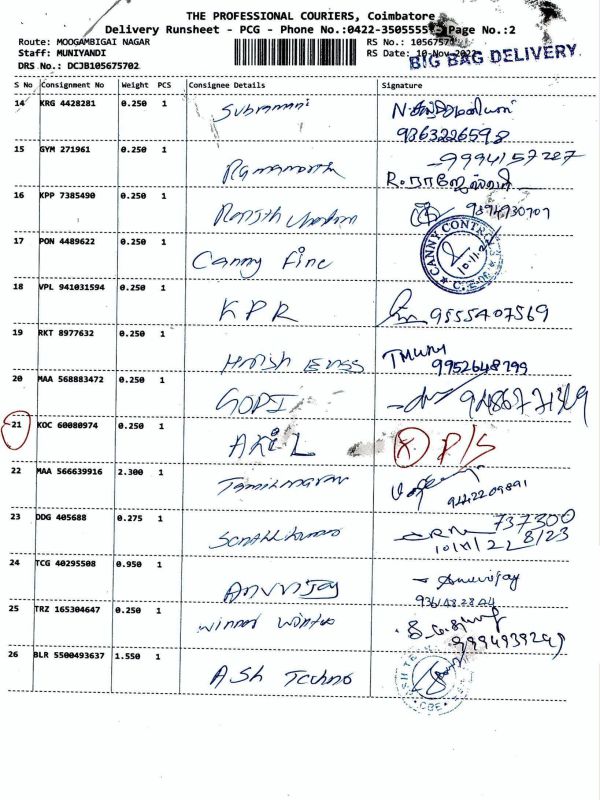 THE PROFESSIONAL COURIERS, Coimbatore
Delivery Runsheet - PCG - Phone No.:0422-3505555 - Page No.:2
Route: MOOGAMBIGAI NAGAR RS No.: 10567570
Staff: MUNIYANDI RS Date: 10-Nov-2022
BIG BAG DELIVERY
DRS No.: DCJB105675702
S No Consignment No Weight PCS Consignee Details Signature
14 KRG 4428281 0.250 1 Subramani
9363226598
15 GYM 271961 0.250 1 Ramamoorth 9994157287
16 KPP 7385490 0.250 1 Ranjith 9894930707
17 PON 4489622 0.250 1 Canny Fine
CANNY CONTROLS
10.11.22
18 VPL 941031594 0.250 1 KPR 9555407569
19 RKT 8977632 0.250 1
9952648799
20 MAA 568883472 0.250 1 GOPI
21 KOC 60080974 0.250 1 AKiL X. P/S
22 MAA 566639916 2.300 1 Tamilmaran
9442209891
23 DDG 405688 0.275 1 737300
8123
10/11/22
24 TCG 40295508 0.950 1 Anuvijay Anuvijay
25 TRZ 165304647 0.250 1 Winner
26 BLR 5500493637 1.550 1 ASh Techno